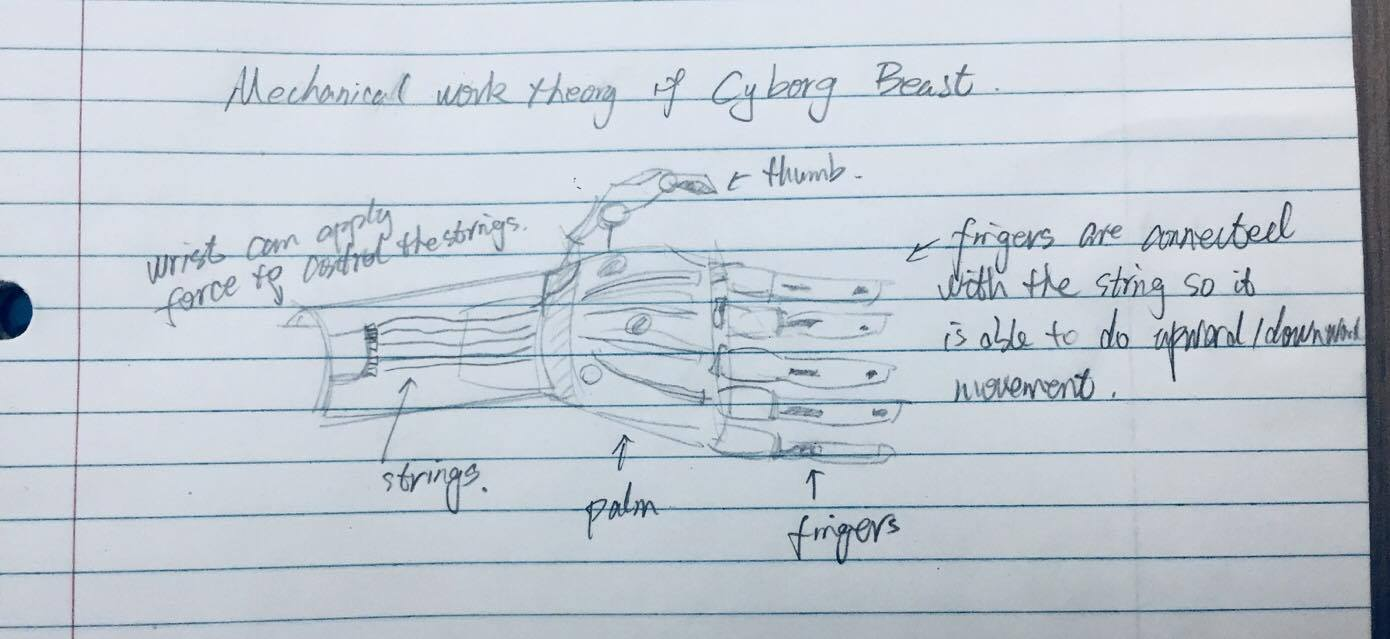 Mechanical work theory of Cyborg Beast.
← thumb.
wrist can apply
force to control the strings.
← fingers are connected
with the string so it
is able to do upward/downward
movement.
strings.
palm
fingers